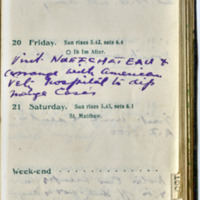 20 Friday. Sun rises 5.43, sets 6.4
1h 1m After.
Visit NAEFCHATEAU &
arrange with American
Vet: hospital to dip
mange cases
21 Saturday. Sun rises 5.45, sets 6.1
St. Matthew.
Week-end